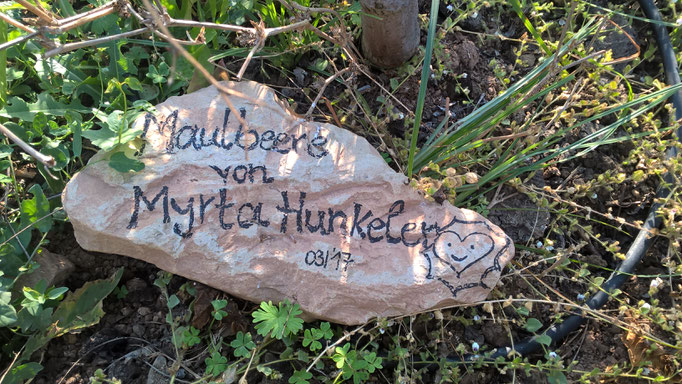 Maulbeere
von
Myrta Hunkeler
03/17